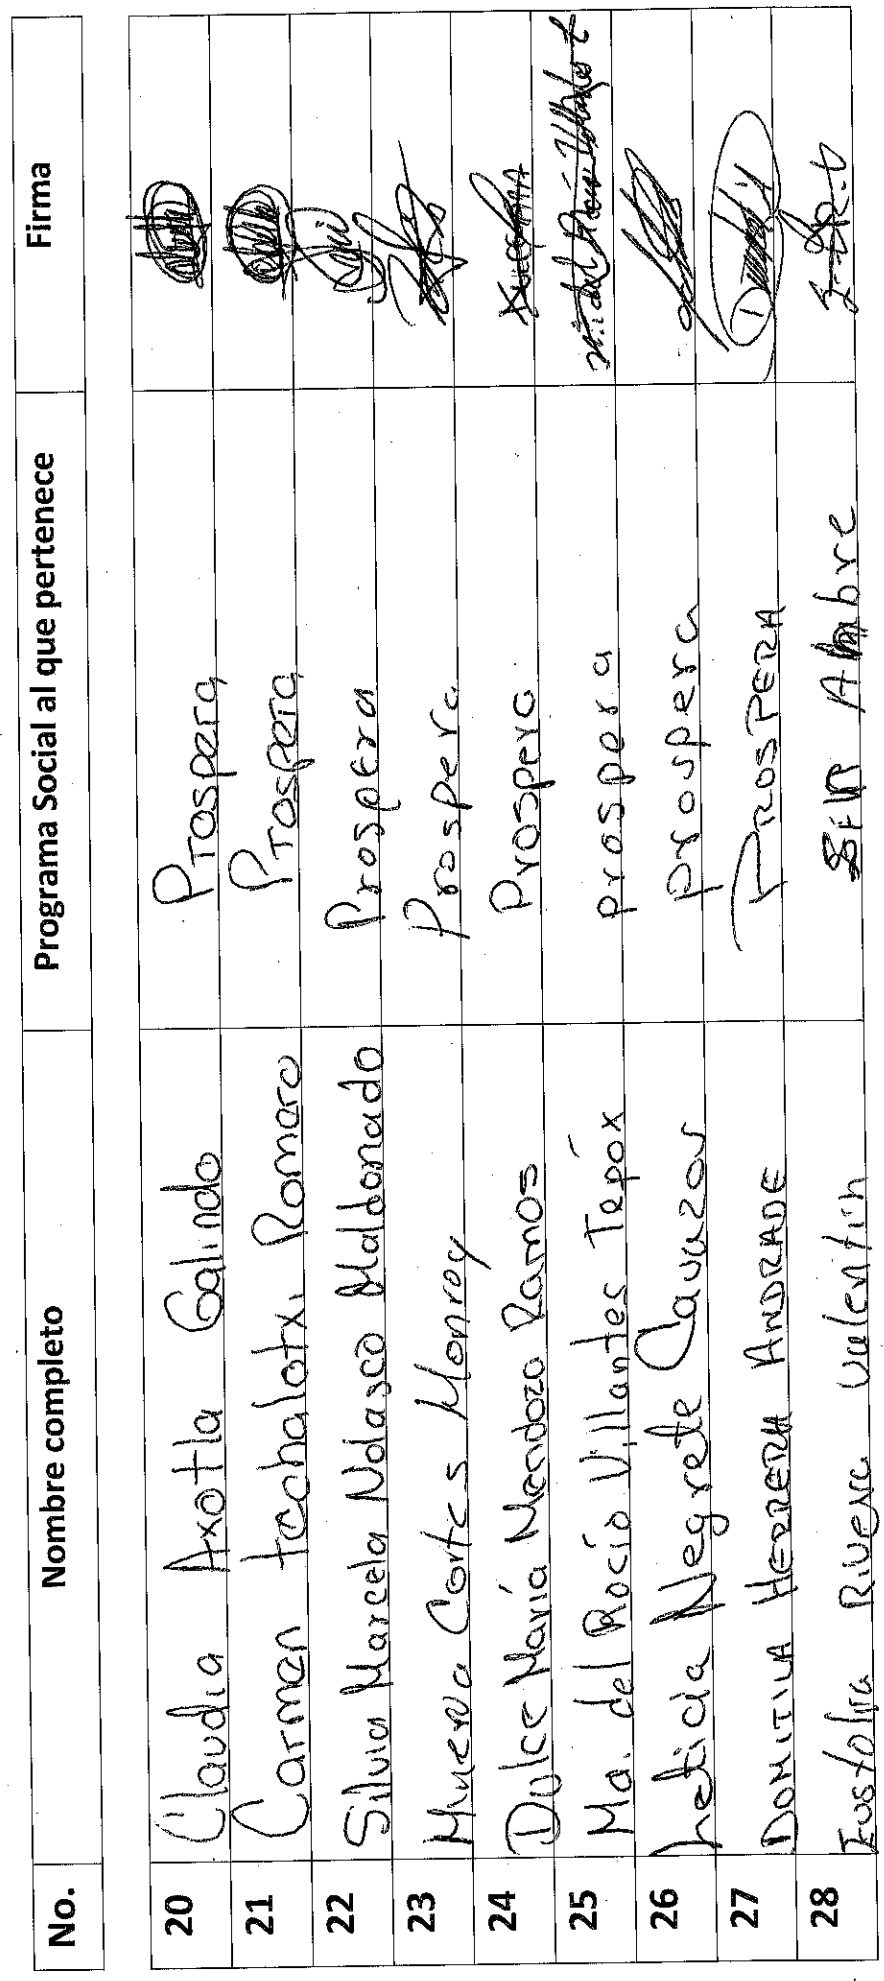 No. Nombre completo Programa Social al que pertenece Firma
20 Claudia Axotla Galindo Prospera
21 Carmen techalotzi Romero Prospera
22 Silvia Marcela Nolasco Maldonado Prospera
23 Minerva Cortes Monroy Prospera
24 Dulce María Mendoza Ramos Prospera
25 Ma. del Rocío Villantes Tepox prospera
26 Leticia Negrete Cavazos prospera
27 DOMITILA HERRERA ANDRADE PROSPERA
28 Eustolia Rivera Valentin Sin Ambre